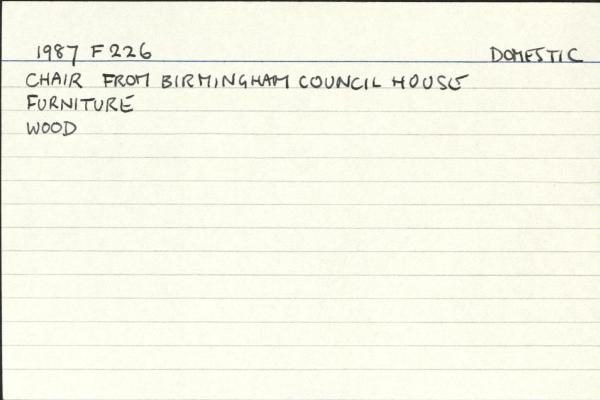 1987 F226 DOMESTIC
CHAIR FROM BIRMINGHAM COUNCIL HOUSE
FURNITURE
WOOD